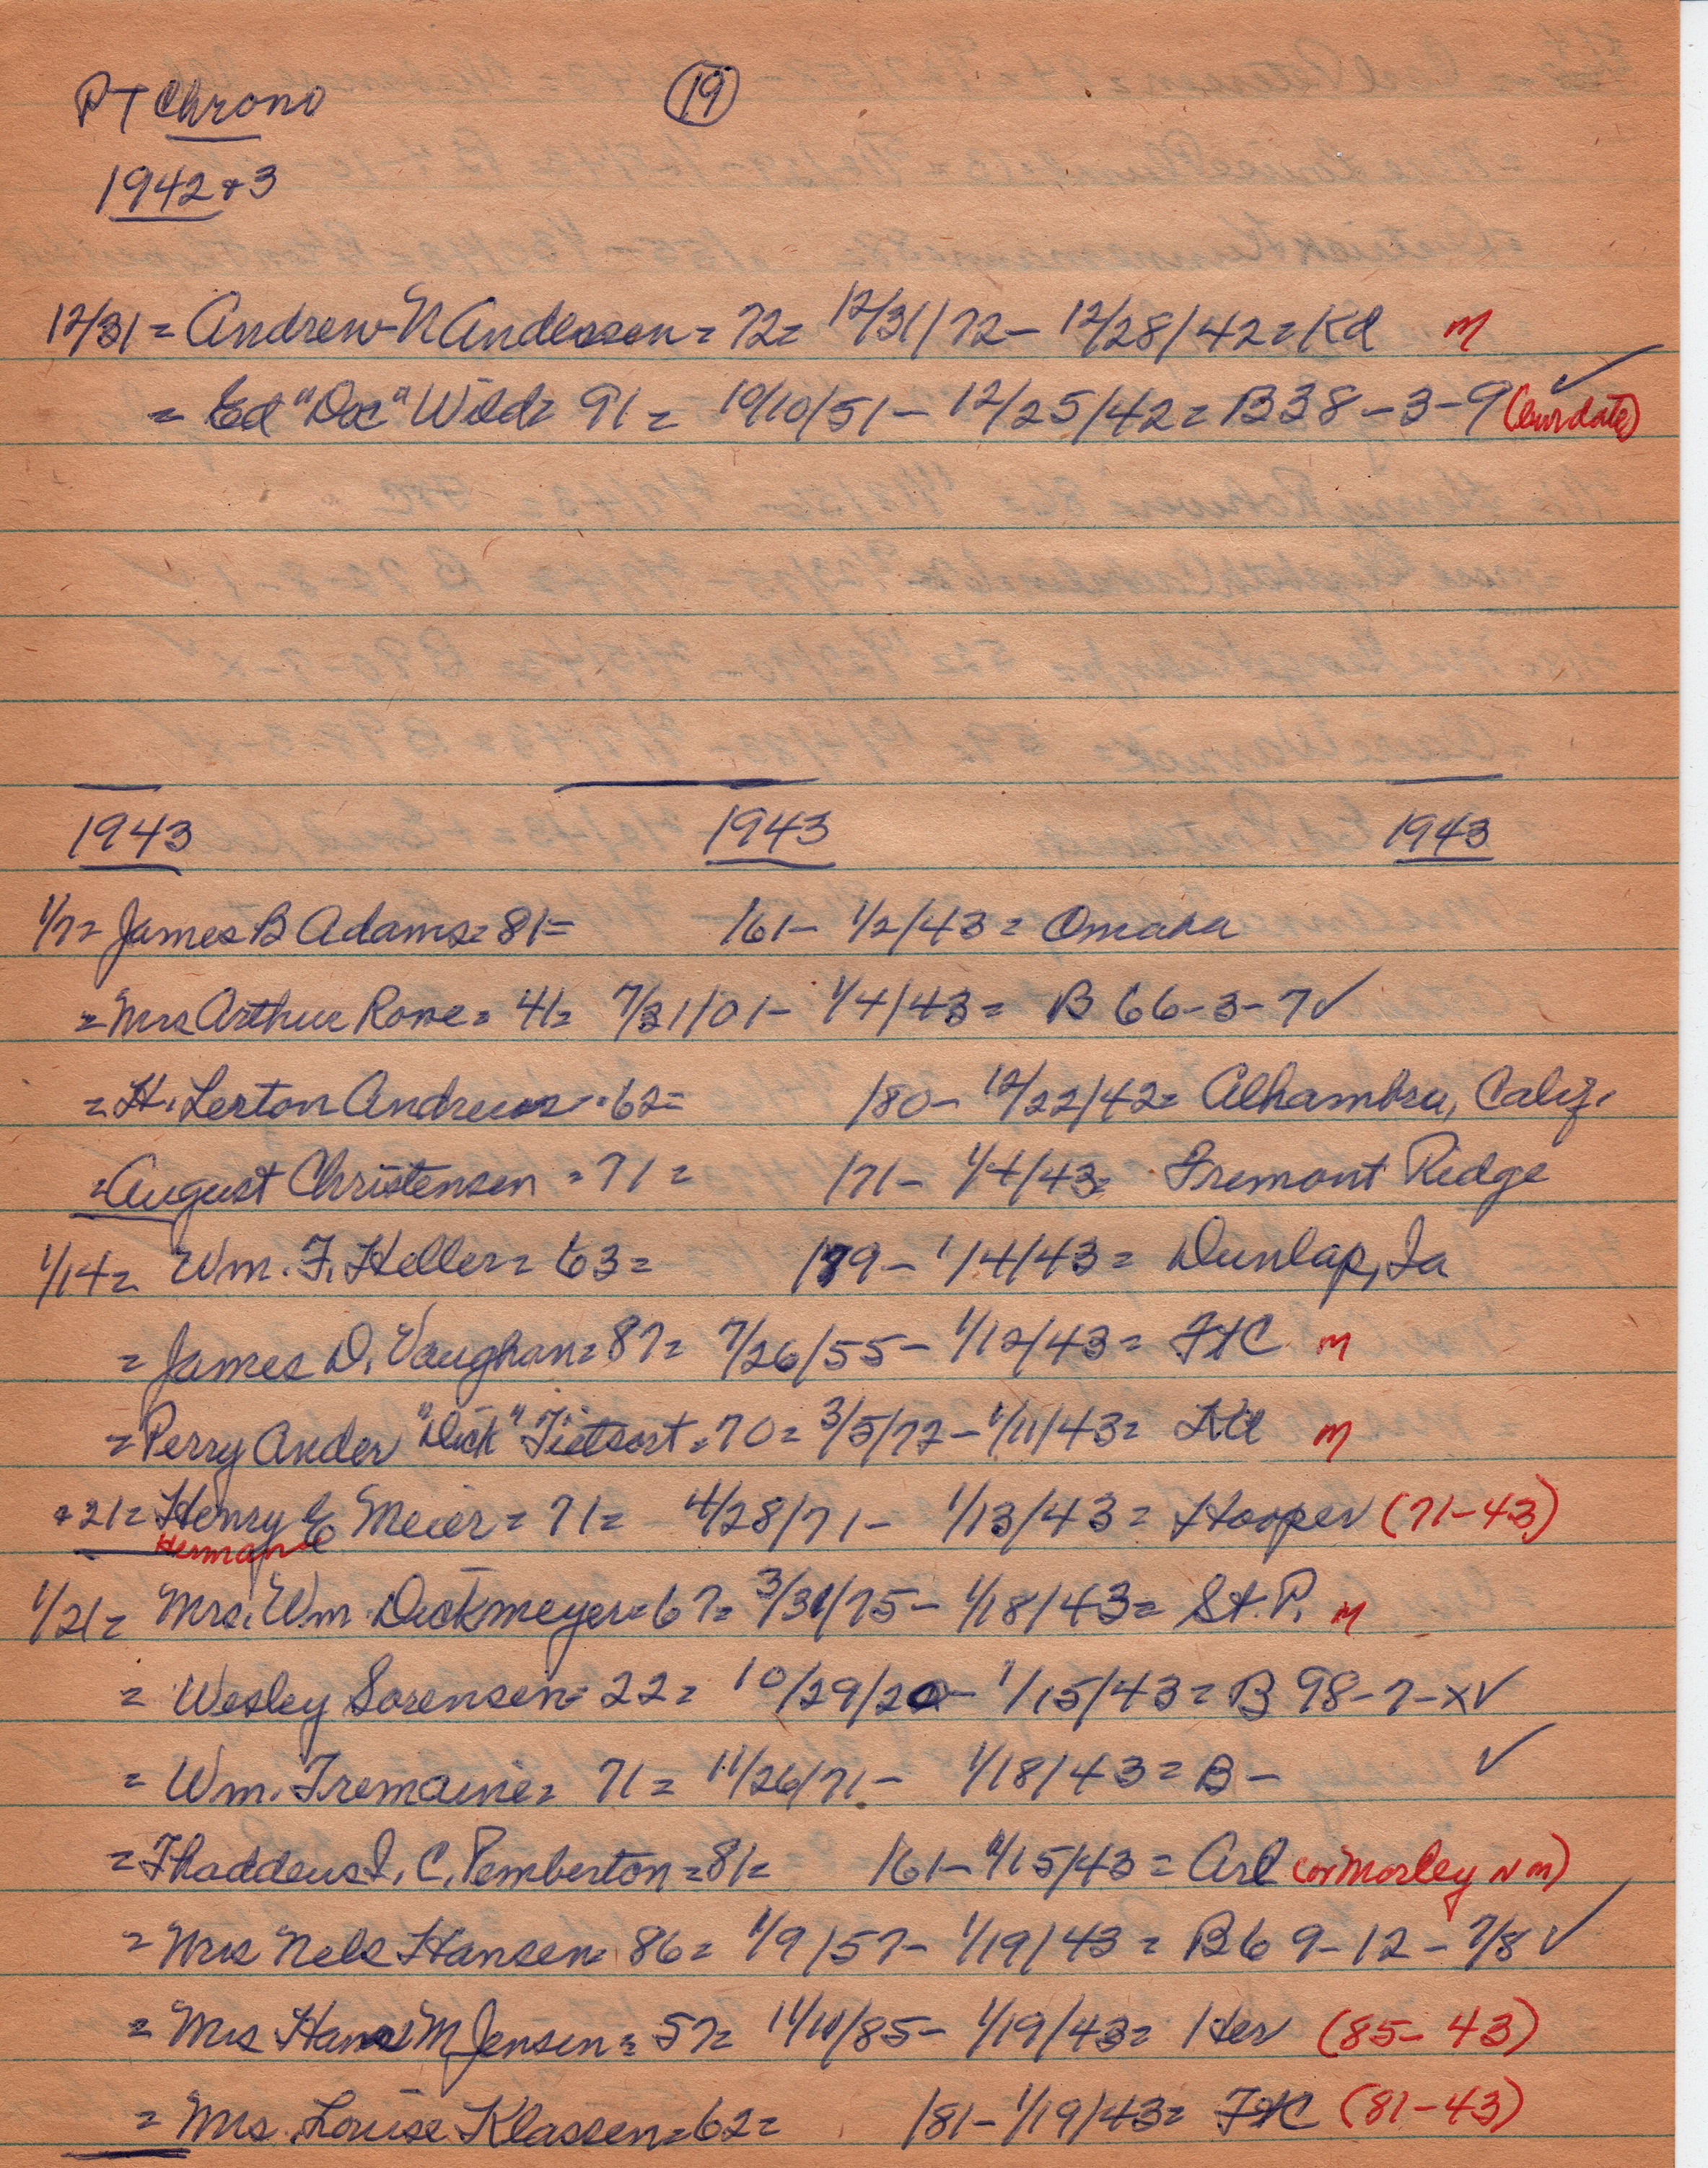 PT Chrono (19)
1942 & 3
12/31 = Andrew N Anderson = 72 = 12/31/72 - 12/28/42 = Kd m
= Ed "Doc" Wild = 91 = 10/10/51 - 12/25/42 = B38-3-9 ✓ (burdate)
1943 1943 1943
1/7 = James B Adams = 81 = /61 - 1/2/43 = Omaha
= Mrs Arthur Rowe = 41 = 7/31/01 - 1/4/43 = B 66-3-7 ✓
= H. Lerton Andrews = 62 = /80 - 12/22/42 = Alhambra, Calif.
= August Christensen = 71 = /71 - 1/4/43 = Fremont Ridge
1/14 = Wm. F. Heller = 63 = /79 - 1/4/43 = Dunlap, Ia
= James D. Vaughan = 87 = 7/26/55 - 1/12/43 = FtC m
= Perry Ander "Dick" Tietsort = 70 = 3/5/72 - 1/11/43 = Kd m
& 21 = Henry E Meier = 71 = 4/28/71 - 1/13/43 = Hooper (71-43)
Herman
1/21 = Mrs. Wm. Dickmeyer = 67 = 3/31/75 - 1/18/43 = St. P. m
= Wesley Sorensen = 22 = 10/29/20 - 1/15/43 = B 98-7-x ✓
= Wm. Tremaine = 71 = 11/26/71 - 1/18/43 = B - ✓
= Thaddeus I. C. Pemberton = 81 = /61 - 1/15/43 = Arl (or Morley N M)
= Mrs Nels Hansen = 86 = 1/9/57 - 1/19/43 = B69-12-7/8 ✓
= Mrs Hans M Jensen = 57 = 11/11/85 - 1/19/43 = Her (85-43)
= Mrs. Louise Klassen = 62 = /81 - 1/19/43 = FtC (81-43)